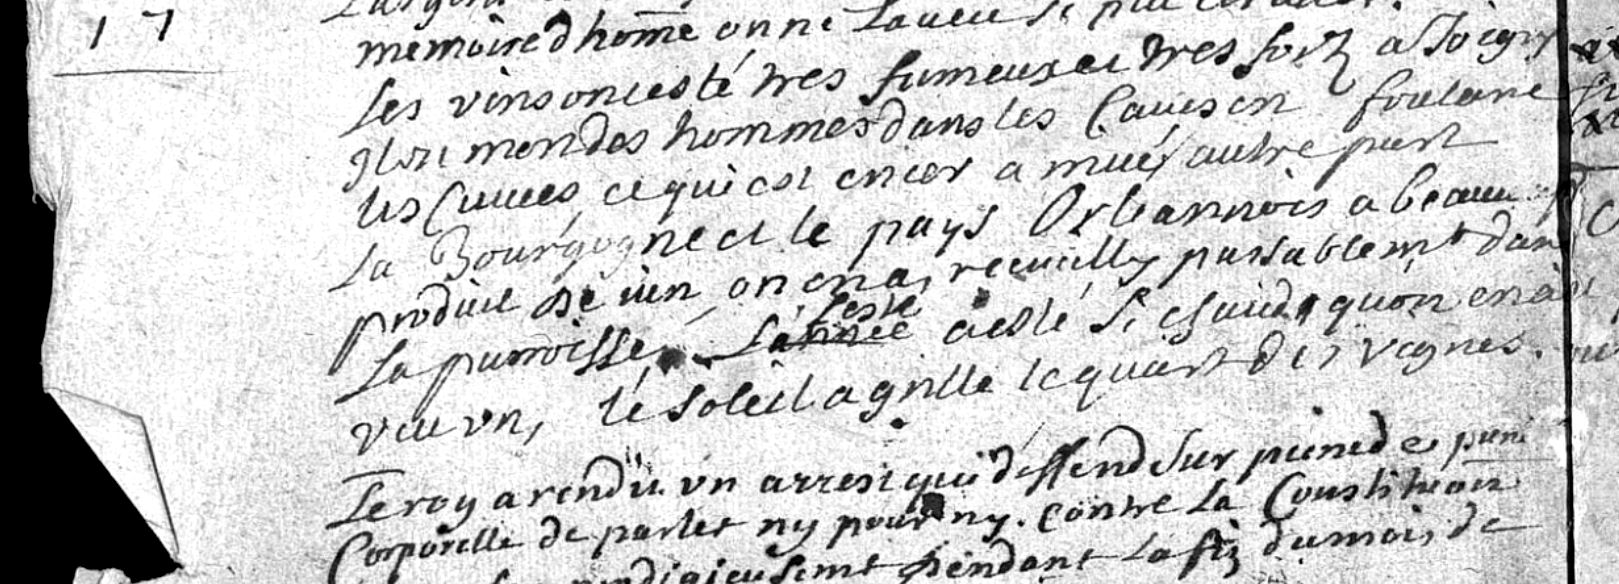 17
memoire d'home on ne la veu si
les vins ont esté tres fumeux et tres fort a Joigny
il ont mon des hommes dans les Caues en foulant
les Cuuees ce qui est encor a mué autre part
La Bourgogne et le pays Orleannois a beaucoup
produit de vin, on en a, recueilly passablemt dans
La parroisse, L'année l'esté a esté si chaud, quon en a
veu un, le soleil a grillé le quart des vignes.
Le roy a rendu un arrest qui deffend sur peine de puni
Corporelle de parler ny pour ny contre la Constitution
prodigieusemt pendant la fin du mois de